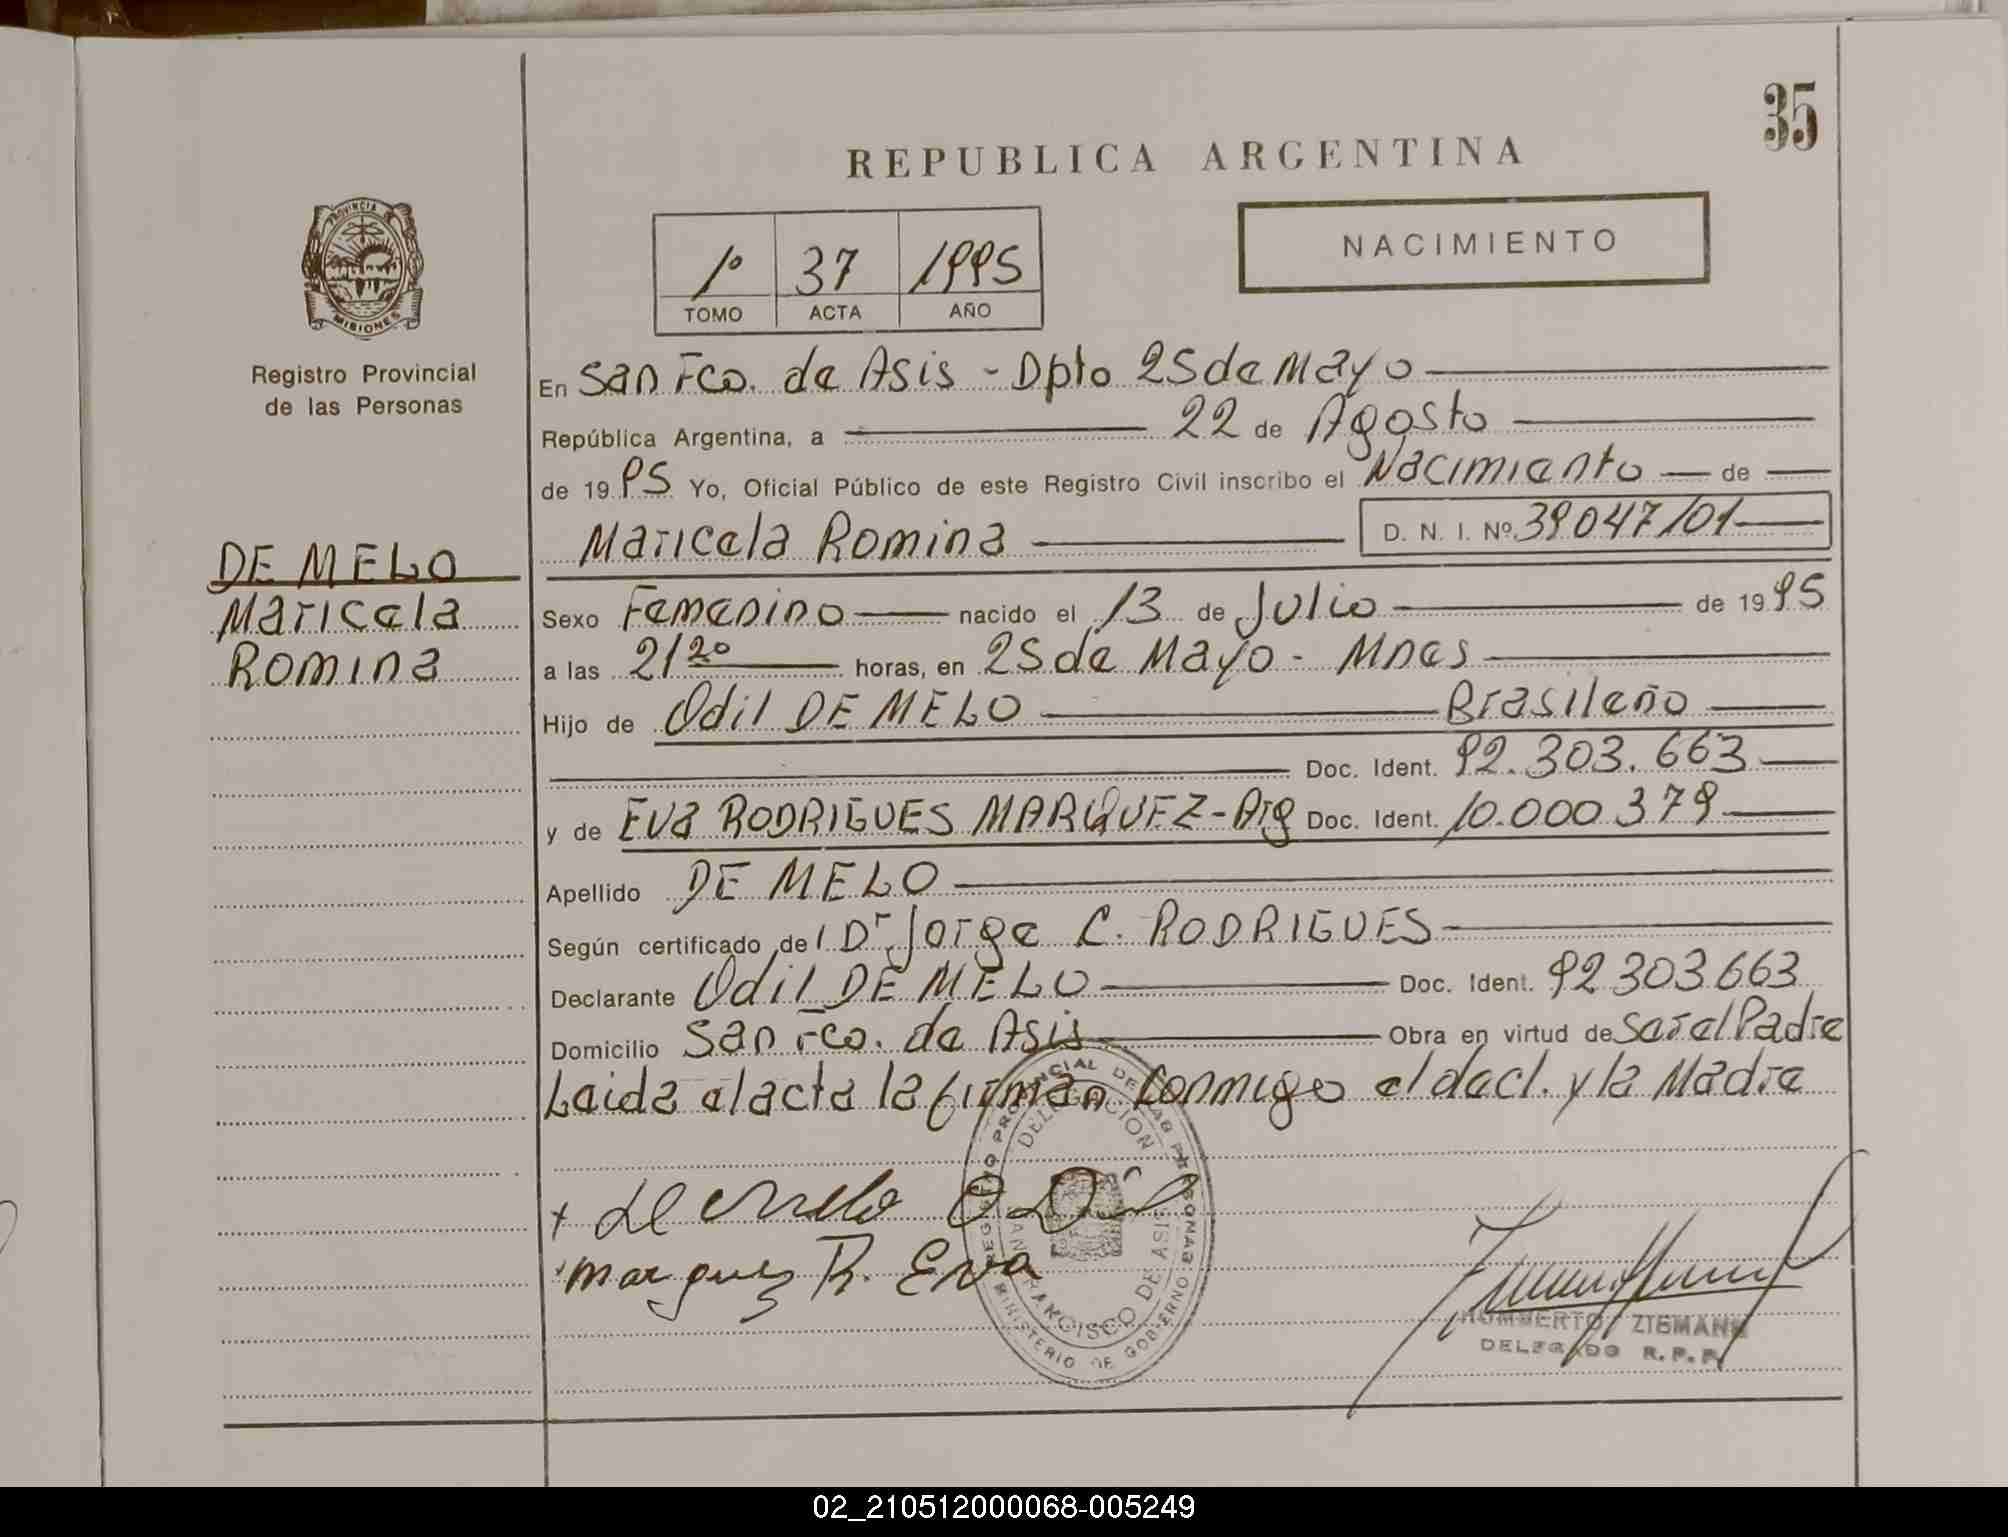 35
REPUBLICA ARGENTINA
PROVINCIA DE
MISIONES
Registro Provincial
de las Personas
1º 37 1995
TOMO ACTA AÑO
NACIMIENTO
DE MELO
Maricela
Romina
En San Fco. de Asis - Dpto 25 de Mayo
República Argentina, a 22 de Agosto
de 1995 Yo, Oficial Público de este Registro Civil inscribo el Nacimiento de
Maricela Romina D. N. I. Nº 39047101
Sexo Femenino nacido el 13 de Julio de 1995
a las 21 20 horas, en 25 de Mayo - Mnes
Hijo de Odil DE MELO Brasileño
Doc. Ident. 92.303.663
y de Eva RODRIGUES MARQUEZ - Arg Doc. Ident. 10.000.379
Apellido DE MELO
Según certificado del Dr Jorge C. RODRIGUES
Declarante Odil DE MELO Doc. Ident. 92303.663
Domicilio San Fco. de Asis Obra en virtud de Ser el Padre
Leida el acta la firman conmigo el decl. y la Madre
REGISTRO PROVINCIAL DE LAS PERSONAS
DELEGACION
SAN FRANCISCO DE ASIS
MINISTERIO DE GOBIERNO
+ de Mello Odil
Marquez R. Eva
HUMBERTO ZIEMANN
DELEGADO R.P.P.
02_210512000068-005249